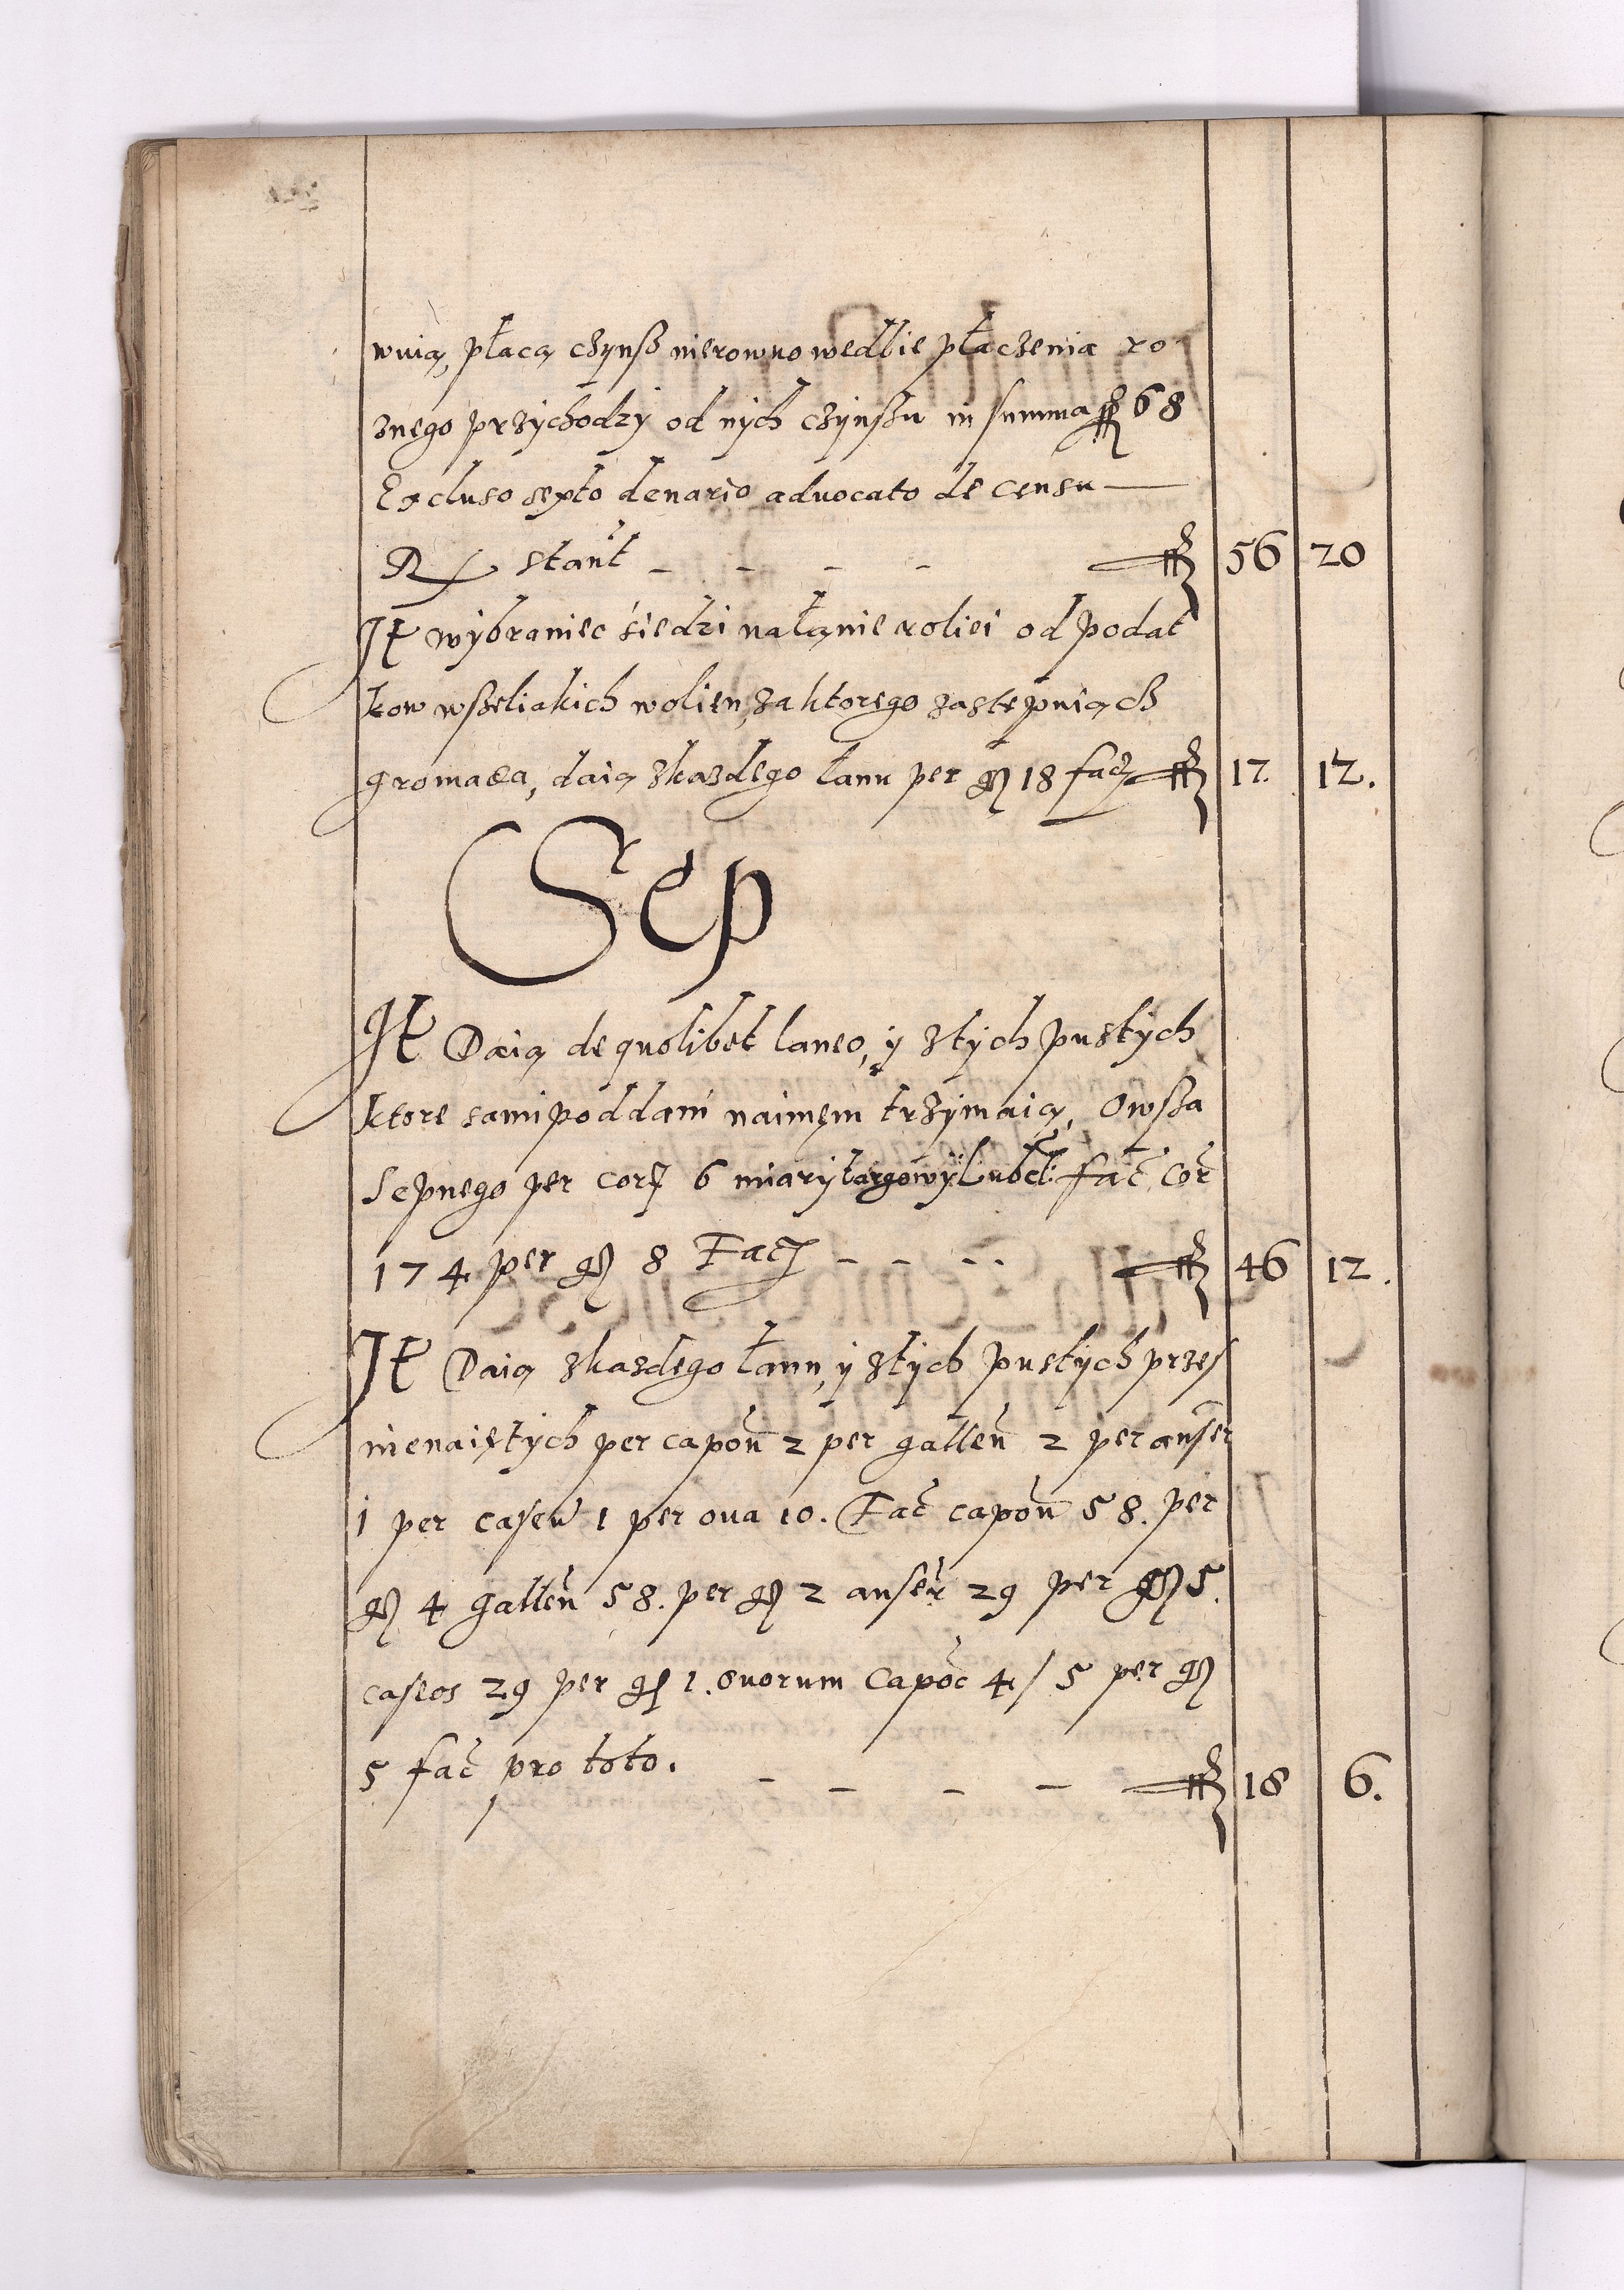 wuią, płacą czynsz nierowno wedlie płaczenia ro
znego przychodzy od nych czynszu in summa fl 68
Excluso sexto denario advocato de censu
Rx stant̃ - - - - fl 56 20
It wybraniec śiedzi na łanie roliei od podat
kow wszeliakich wolien, za ktorego zastępuią cz
gromada, daią zkazdego łanu per gr 18 facz fl 17. 12.
Sep
It Daią de quolibet laneo, y ztych pustych
ktore sami poddani naimem trzymaią, Owsza
Sepnego per corz 6 miary targowy Lubel: fac̃ cor̃
174 per gr 8 Facz - - - fl 46 12.
It Daią zkazdego łanu, y ztych pustych przes
nienaiętych per capon̄ 2 per gallen̄ 2 per anser
1 per caseū 1 per ova 10. Fac̃ capon̄ 58. per
gr 4 gallen̄ 58. per gr 2 anser̄ 29 per gr 5.
caseos 29 per gr 1. ovorum Capoc̃ 4/5 per gr
5 fac̃ pro toto. - - - - fl 18 6.